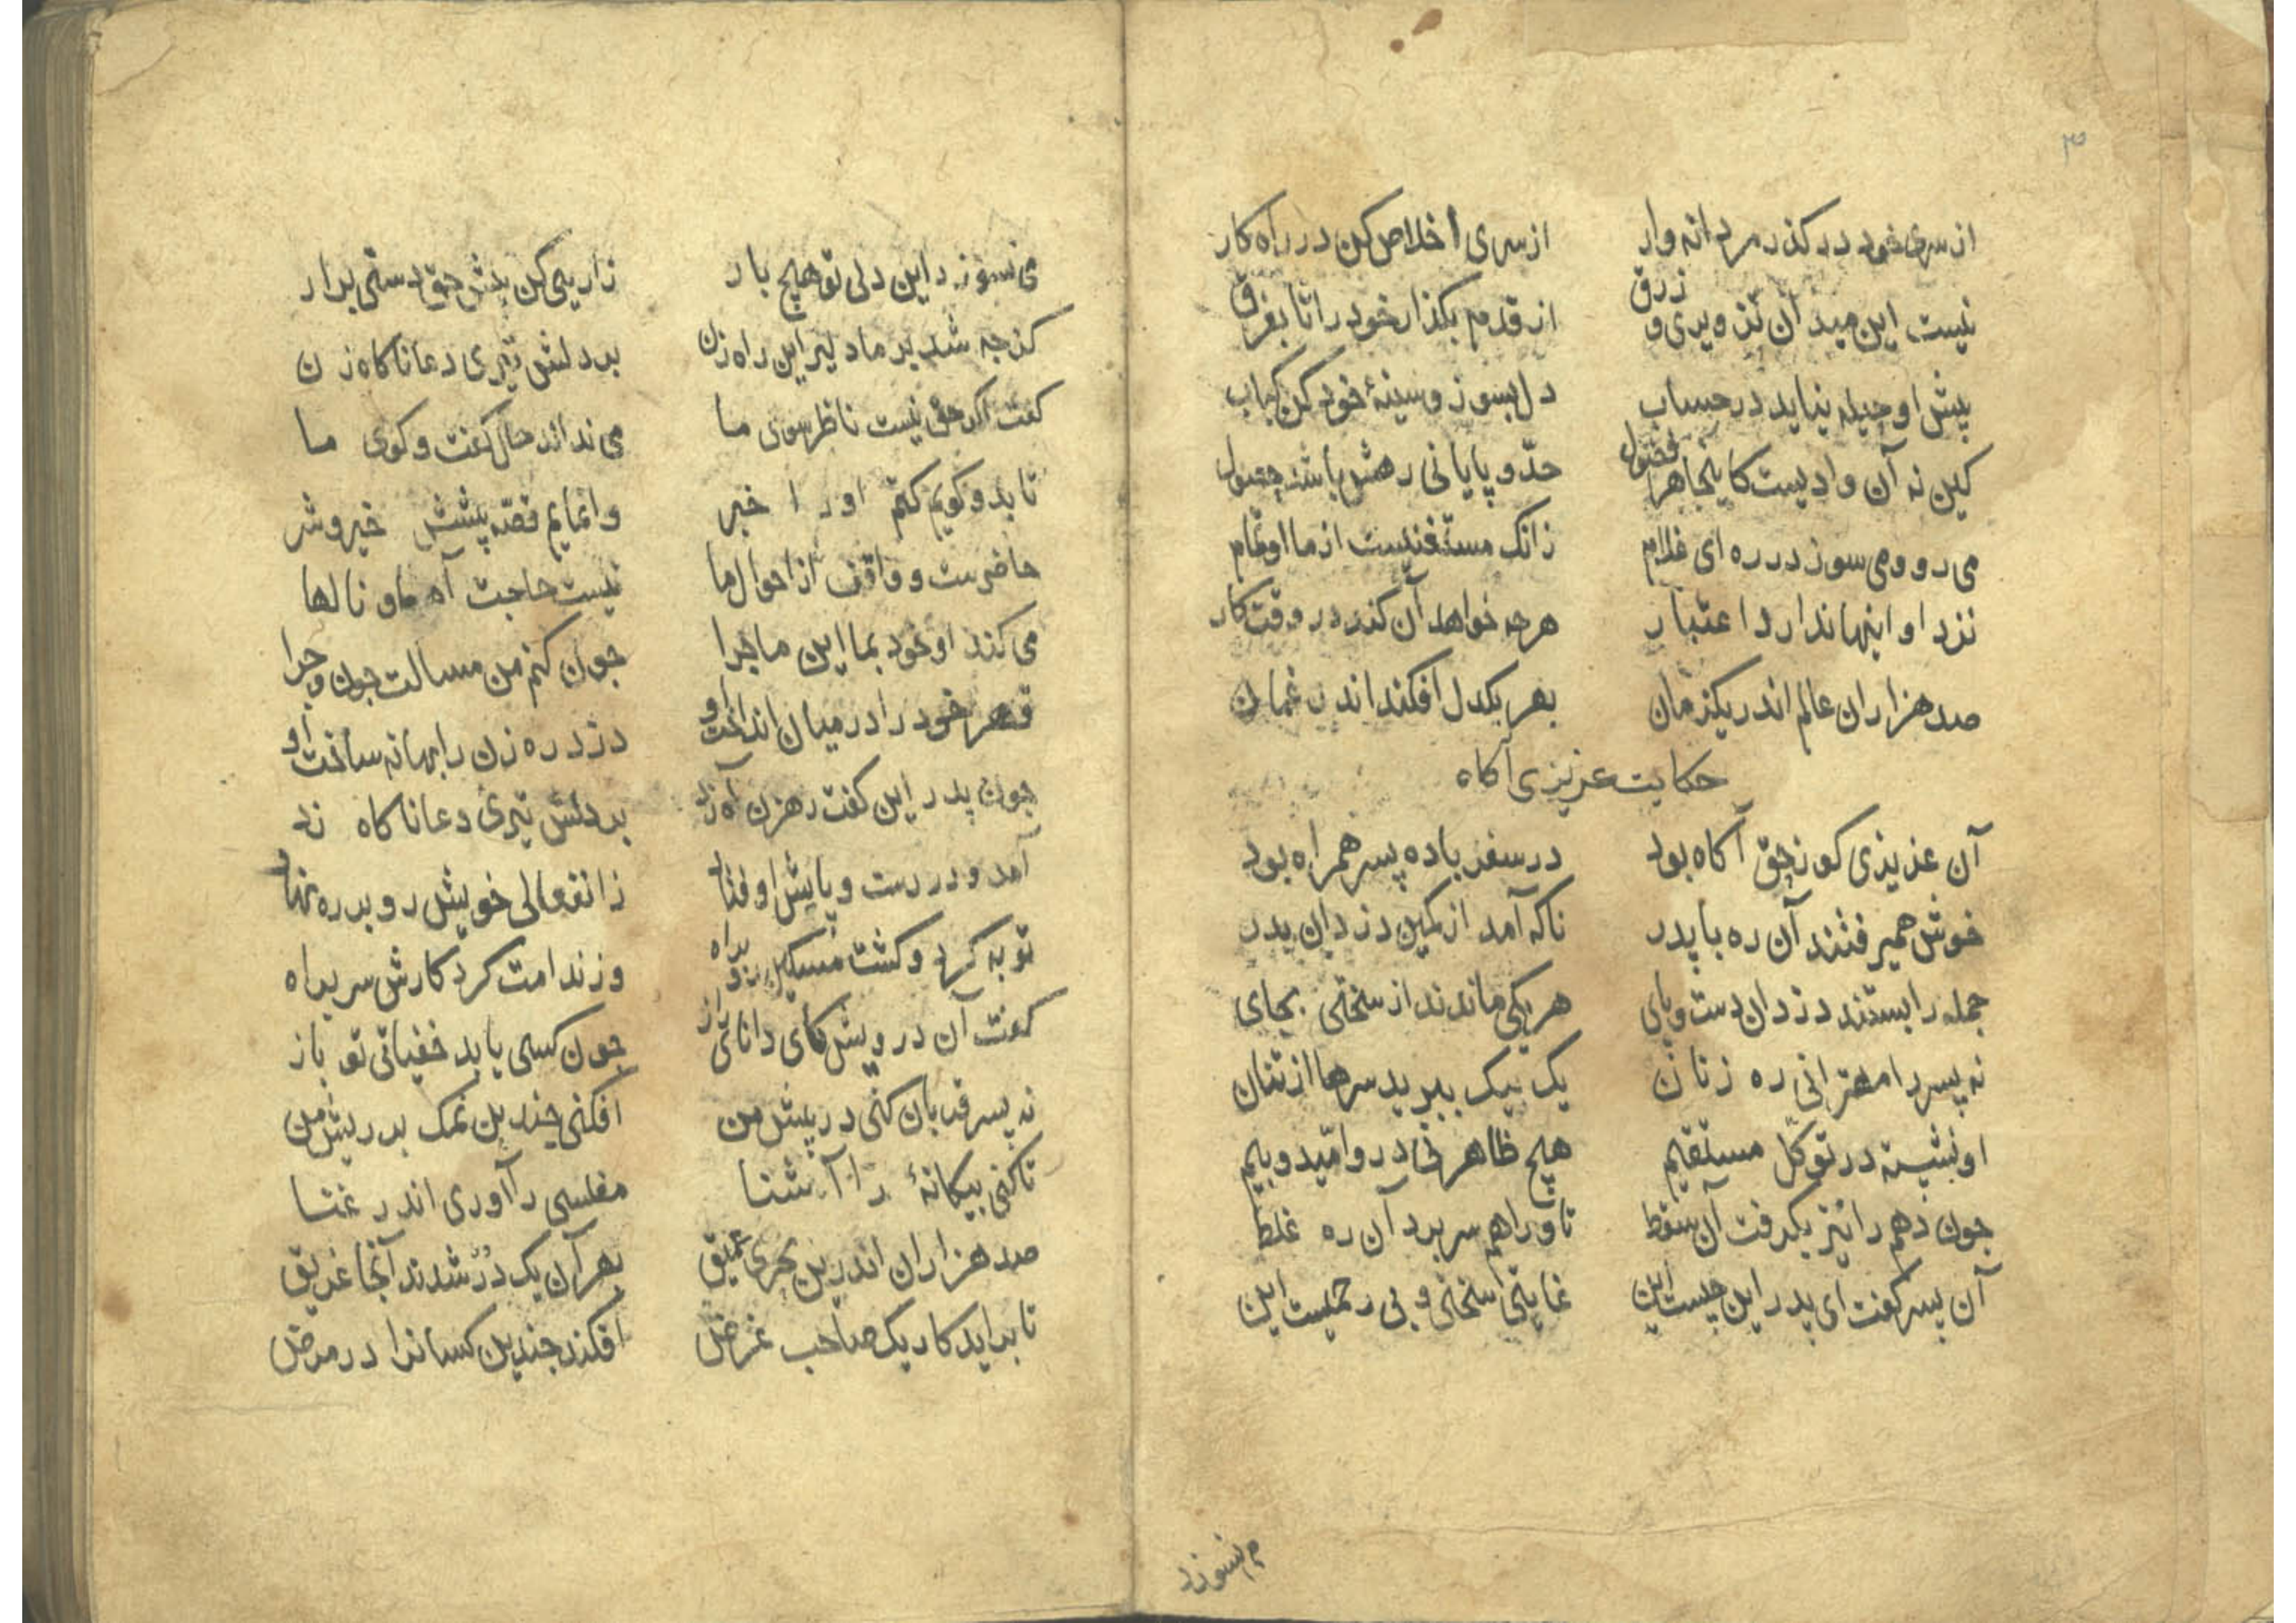 ۳
از سری خود در کذر مردانه وار از سری اخلاص کن در راه کار
نیست این میدان تزویری و زرق از قدم بکذار خود را تا بفرق
پیش او حیله نیاید در حساب دل بسوز و سینهٔ خود کن کباب
کین نه آن وادیست کاینجا هر فضول حدّ و پایانی رهش باشد
می رو و می سوز در ره ای غلام زانک مستغنیست از ما او تمام
نزد او اینها ندارد اعتبار هرچه خواهد آن کند در وقت کار
صد هزاران عالم اندر یکزمان بهر یکدل افکند اندر غمان
حکایت عزیزی آکاه
آن عزیزی کو زحق آکاه بود در سفر با ده پسر همراه بود
خوش همیرفتند آن ره با پدر ناکه آمد از کمین دزدان بدر
جمله را بستند دزدان دست و پای هر یکی ماندند از سختی بجای
نه پسر را مهترانی ره زنان یک بیک ببرید سرها از تنان
او نشسته در توکّل مستقیم هیچ ظاهر نی درو امّید و بیم
جون دهم را نیز بکرفت آن سقط تا ورا هم سر برد آن ره غلط
آن پسر کفت ای پدر این چیست این غایتی سختی و بی رحمیست این
می نسوزد
می نسوزد این دلی تو هیچ بار زاریی کن پیش حق دستی برار
کزجه شد بر ما دلیر این راه زن بر دلش تیری دعا ناکاه زن
کفت اکر حق نیست ناظر سوی ما می نداند حال کفت و کوی ما
تا بدو کویم کنم او را خبر وانمایم قصّه پیشش خیر و شر
حاضرست و واقف از احوال ما نیست حاجت آه ما و نالها
می کند او خود بما این ماجرا جون کنم من مسالت جون و چرا
قهر خود را در میان انداخت او دزد ره زن را بهانه ساخت او
جون پدر این کفت رهزن آه زد بر دلش تیری دعا ناکاه زد
آمد و در دست و پایش اوفتاد ز انفعالی خویش رو بر ره نهاد
توبه کرد و کشت مسکین براه وز ندامت کرد کارش سر براه
کفت آن درویش کای دانای راز جون کسی یابد خفیاتی تو باز
نه پسر قربان کنی در پیش من افکنی چندین نمک بر ریش من
تا کنی بیکانهٔ را آشنا مفلسی را آوری اندر غنا
صد هزاران اندرین بحری عمیق بهر آن یک دُرّ شدند آنجا غریق
تا براید کار یک صاحب غرض افکند جندین کسانرا در مرض